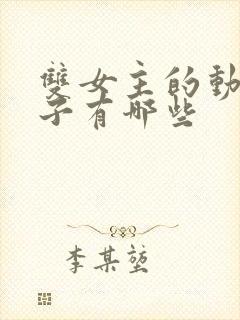 雙女主的動
子有哪些
李某𡎺